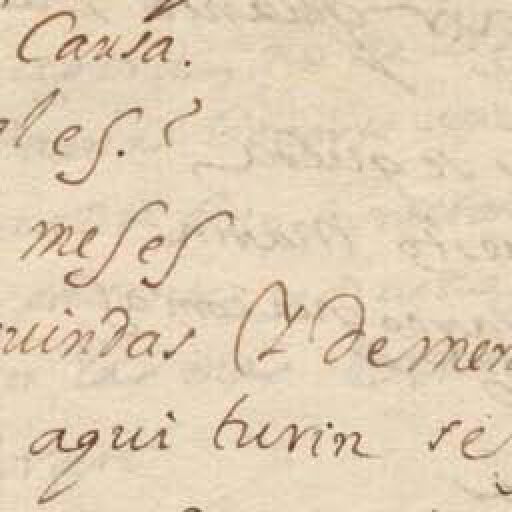 Causa.
les.?
meses
uindas (y demen
aqui turin se